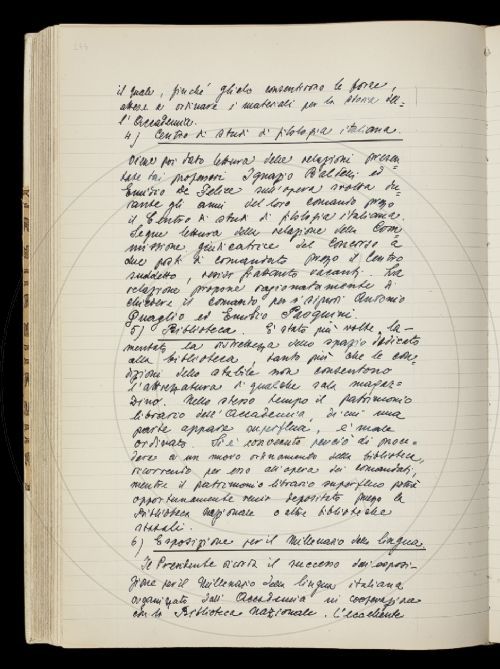 il quale, finché glielo consentirono le forze,
attese a ordinare i materiali per la storia del-
l'Accademia.
4) Centro di studi di filologia italiana.
Viene poi dato lettura delle relazioni presen-
tate dai professori Ignazio Baldelli ed
Emidio De Felice sull'opera svolta du-
rante gli anni del loro comando presso
il Centro di studi di filologia italiana.
Segue lettura della relazione della Com-
missione giudicatrice del concorso a
due posti di comandato presso il Centro
suddetto, resisi frattanto vacanti. La
relazione propone ragionatamente di
chiedere il comando per i signori Antonio
Quaglio ed Emilio Pasquini.
5) Biblioteca. È stata più volte la-
mentata la ristrettezza dello spazio dedicato
alla biblioteca, tanto più che le con-
dizioni dello stabile non consentono
l'attrezzatura di qualche sala magaz-
zino. Nello stesso tempo il patrimonio
librario dell'Accademia, di cui una
parte appare superflua, è male
ordinato. Si è convenuto perciò di proce-
dere a un nuovo ordinamento della biblioteca,
ricorrendo per esso all'opera dei comandati,
mentre il patrimonio librario superfluo potrà
opportunamente venir depositato presso la
Biblioteca nazionale o altre biblioteche
statali.
6) Esposizione per il Millenario della lingua.
Il Presidente ricorda il successo dell'esposi-
zione per il Millenario della lingua italiana
organizzata dall'Accademia in cooperazione
con la Biblioteca Nazionale. L'eccellente